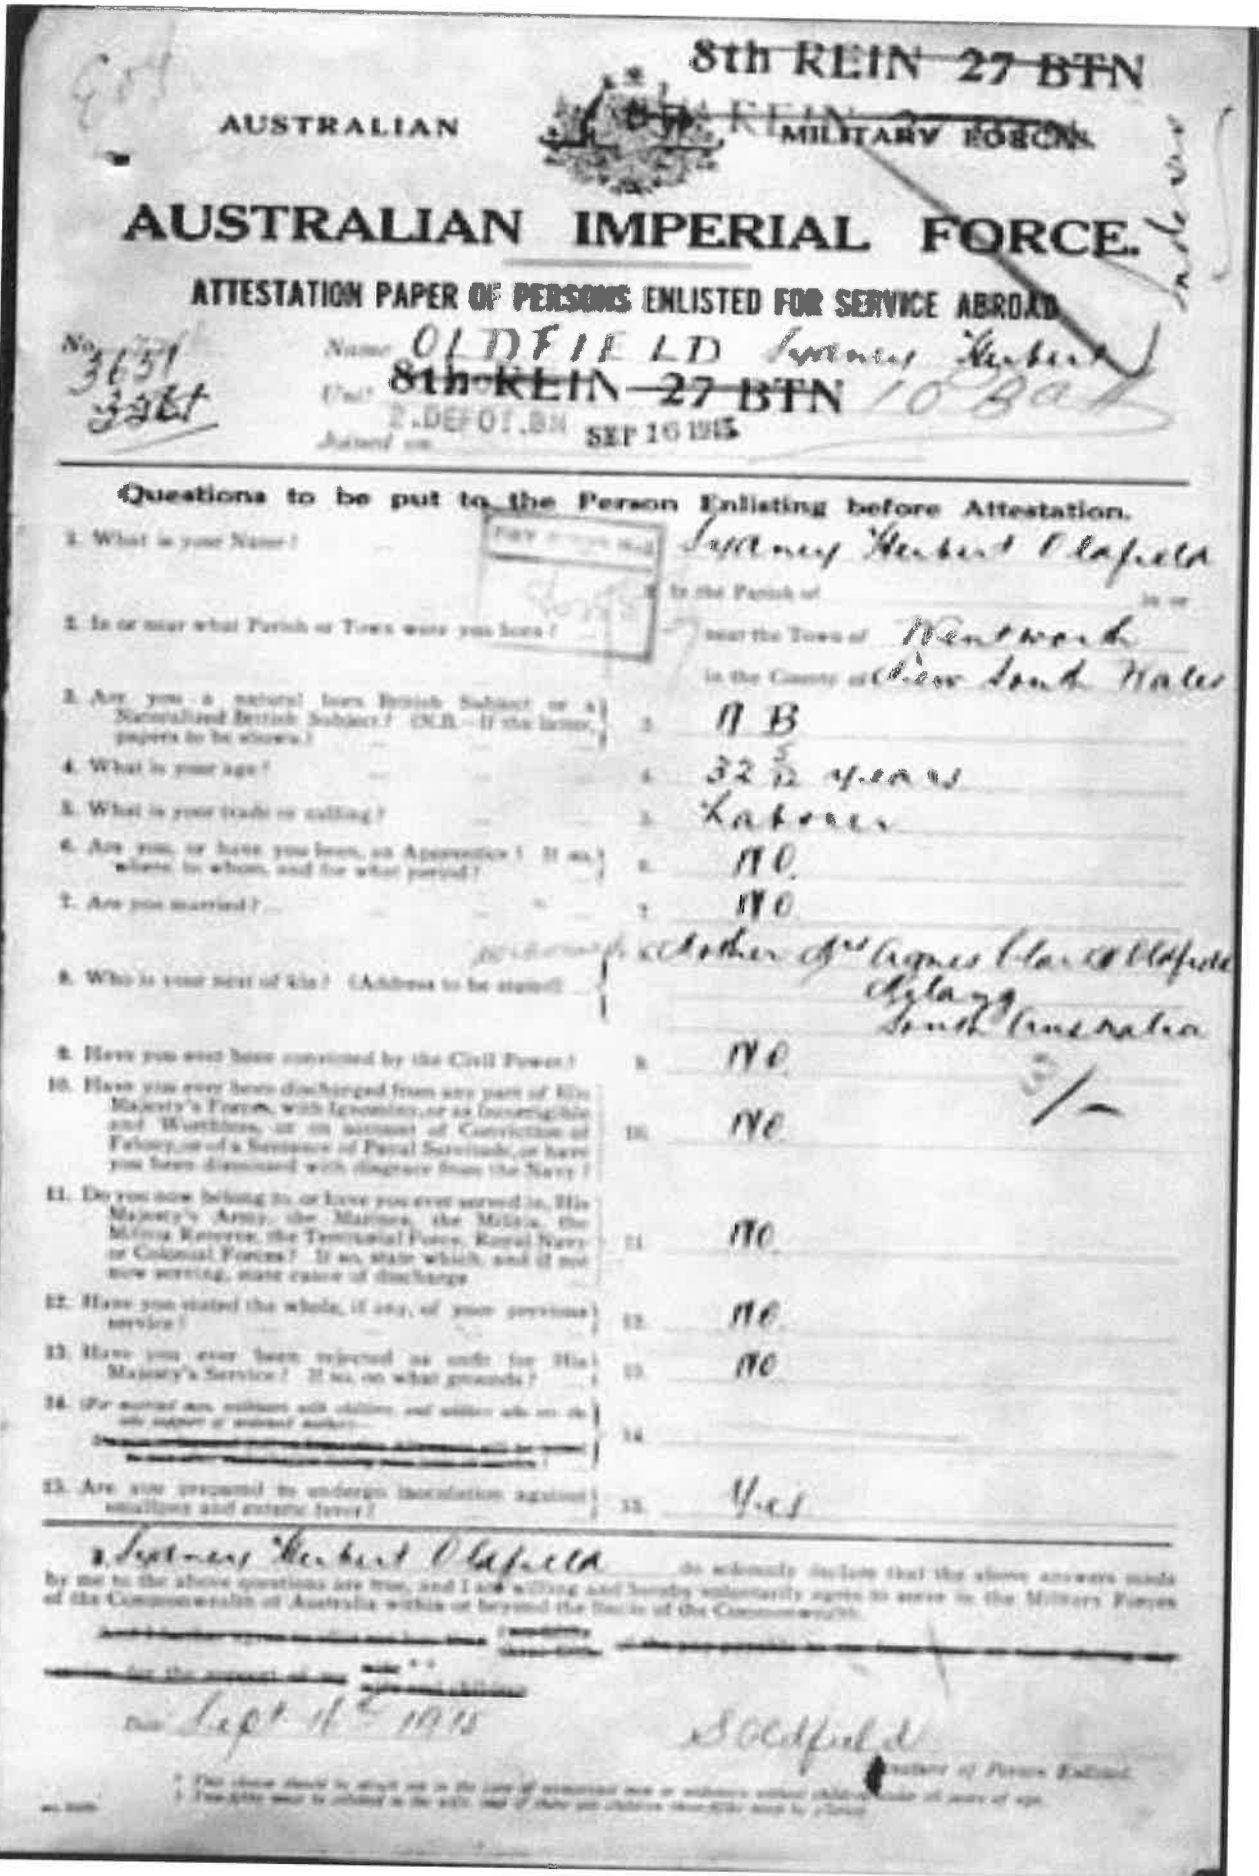 8th REIN 27 BTN
AUSTRALIAN MILITARY FORCES.
AUSTRALIAN IMPERIAL FORCE.
ATTESTATION PAPER OF PERSONS ENLISTED FOR SERVICE ABROAD
No. Name OLDFIELD Sydney Herbert
3651
Unit 8th REIN 27 BTN 10 Batt
2.DEPOT.BN
Joined on SEP 16 1915
Questions to be put to the Person Enlisting before Attestation.
1. What is your Name? Sydney Herbert Oldfield
In the Parish of in or
2. In or near what Parish or Town were you born? near the Town of Wentworth
in the County of New South Wales
3. Are you a natural born British Subject or a
Naturalized British Subject? (N.B.—If the latter, 3. N B
papers to be shown.)
4. What is your age? 4. 32 5/12 years
5. What is your trade or calling? 5. Labourer
6. Are you, or have you been, an Apprentice? If so, 6. NO.
where, to whom, and for what period?
7. Are you married? 7. NO
Mother Mrs Agnes Clara Oldfield
8. Who is your next of kin? (Address to be stated) Milang
South Australia
9. Have you ever been convicted by the Civil Power? 9. NO
10. Have you ever been discharged from any part of His
Majesty's Forces, with Ignominy, or as Incorrigible
and Worthless, or on account of Conviction of 10. NO
Felony, or of a Sentence of Penal Servitude, or have
you been dismissed with disgrace from the Navy?
11. Do you now belong to, or have you ever served in, His
Majesty's Army, the Marines, the Militia, the
Militia Reserve, the Territorial Force, Royal Navy 11. NO
or Colonial Forces? If so, state which, and if not
now serving, state cause of discharge
12. Have you stated the whole, if any, of your previous 12. NO
service?
13. Have you ever been rejected as unfit for His 13. NO
Majesty's Service? If so, on what grounds?
14. (For married men, widowers with children, and soldiers who are the
sole support of widowed mother)— 14.
15. Are you prepared to undergo inoculation against 15. Yes
smallpox and enteric fever?
I Sydney Herbert Oldfield do solemnly declare that the above answers made
by me to the above questions are true, and I am willing and hereby voluntarily agree to serve in the Military Forces
of the Commonwealth of Australia within or beyond the limits of the Commonwealth.
Date Sept 1915
S Oldfield
Signature of Person Enlisted.
* This clause should be struck out in the case of unmarried men or widowers without children under 18 years of age.